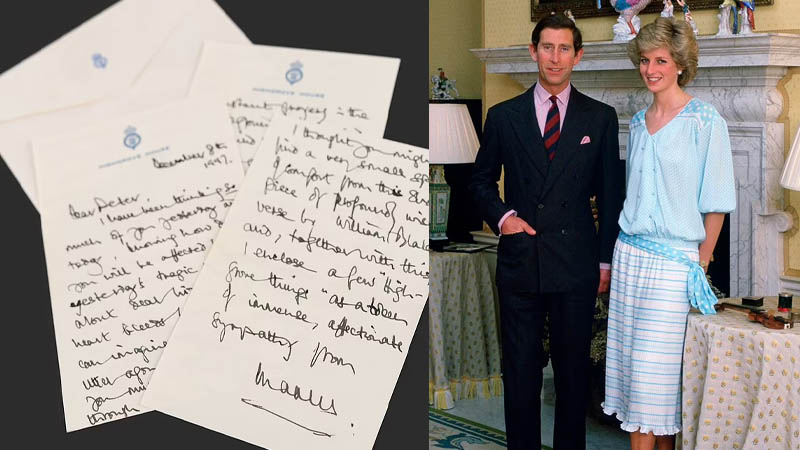 HIGHGROVE HOUSE
December 8th
1997.
Dear Peter
I have been thinking so
much of you yesterday and
today. Knowing how
you will be affected
yesterday's tragic
about dear
heart bleeds
can imagine
utter
you
through
HIGHGROVE HOUSE
progress in the
I thought you might
find a very small
of comfort from this
piece of profound
verse by William Blake
and, together with this
I enclose a few "High-
grove things" as a token
of immense, affectionate
sympathy from
Charles